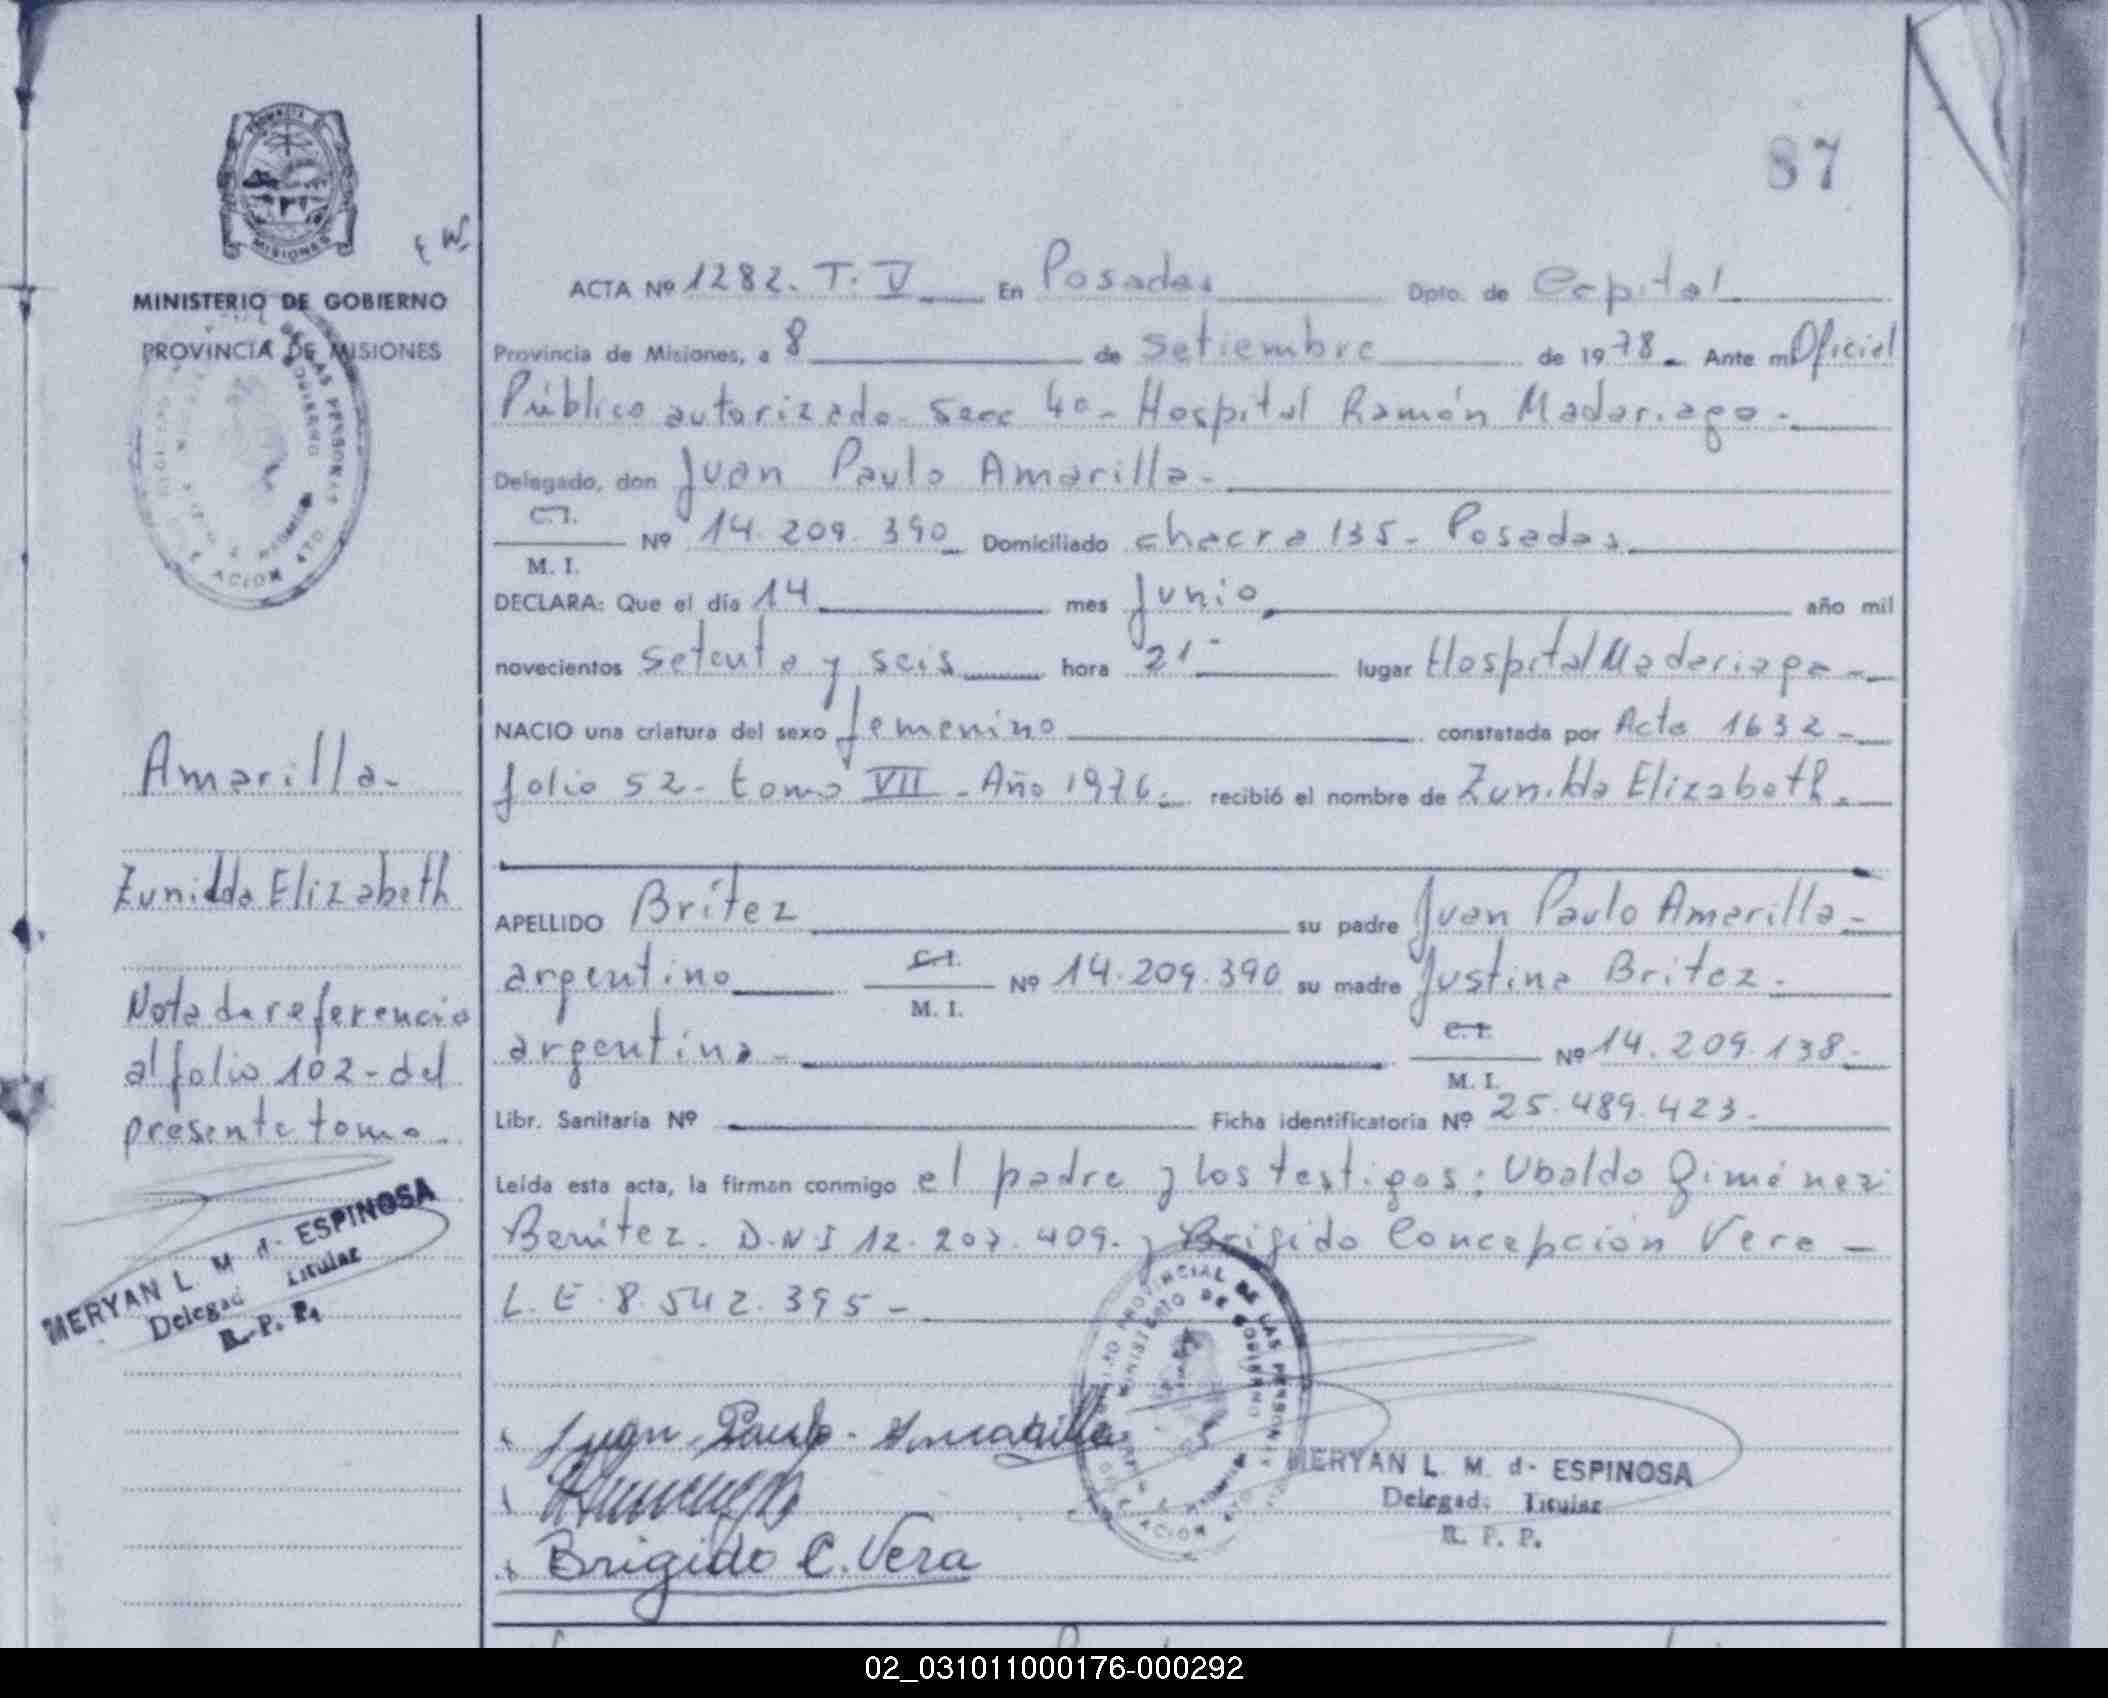 87
PROVINCIA DE
MISIONES
MINISTERIO DE GOBIERNO
PROVINCIA DE MISIONES
ACTA Nº 1282. T. V En Posadas Dpto. de Capital
Provincia de Misiones, a 8 de setiembre de 1978 Ante mí Oficial
Público autorizado Secc 4º - Hospital Ramón Madariaga -
Delegado, don Juan Paulo Amarilla -
C.I.
M. I.
Nº 14.209.390 Domiciliado chacra 135 - Posadas
DECLARA: Que el día 14 mes Junio año mil
novecientos setenta y seis hora 21 lugar Hospital Madariaga -
NACIO una criatura del sexo femenino constatada por Acta 1632 -
folio 52 - tomo VII - Año 1976. recibió el nombre de Zunilda Elizabeth.
APELLIDO Brítez su padre Juan Paulo Amarilla -
argentino C.I. Nº 14.209.390 su madre Justina Brítez -
M. I.
argentina - C.I. Nº 14.209.138 -
M. I.
Libr. Sanitaria Nº Ficha identificatoria Nº 25.489.423 -
Leída esta acta, la firman conmigo el padre y los testigos: Ubaldo Giménez
Benítez - D.N.I 12.207.409. y Brígido Concepción Vera -
L.E. 8.542.395 -
Juan Paulo Amarilla
Brigido C. Vera
MERYAN L. M. d- ESPINOSA
Delegad. Titular
R. P. P.
Amarilla -
Zunilda Elizabeth
Nota de referencia
al folio 102 - del
presente tomo.
MERYAN L M d- ESPINOSA
Delegad Titular
R. P. P.
02_031011000176-000292